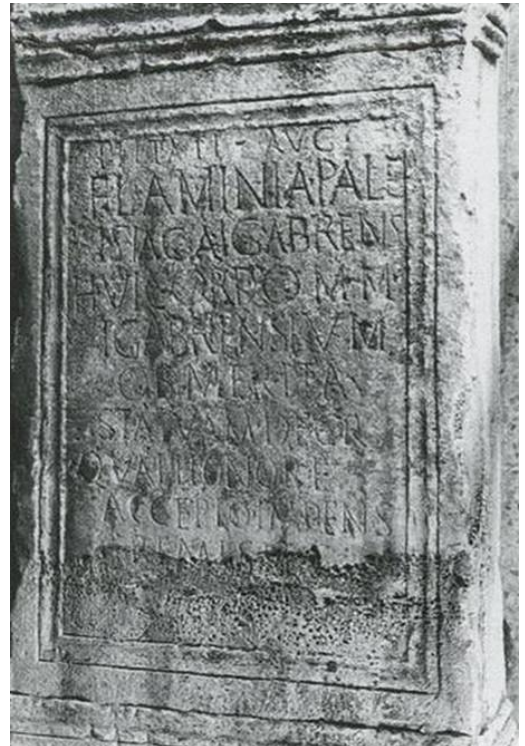 PIETATI · AVG
FLAMINIA PALE
ISIACA IGABRENS
HVIC ORDO M·M·
IGABRENSIVM
OB MERITA
STATVAM DECR
QVAE HONORE
ACCEPTO INPENS
REMISIT